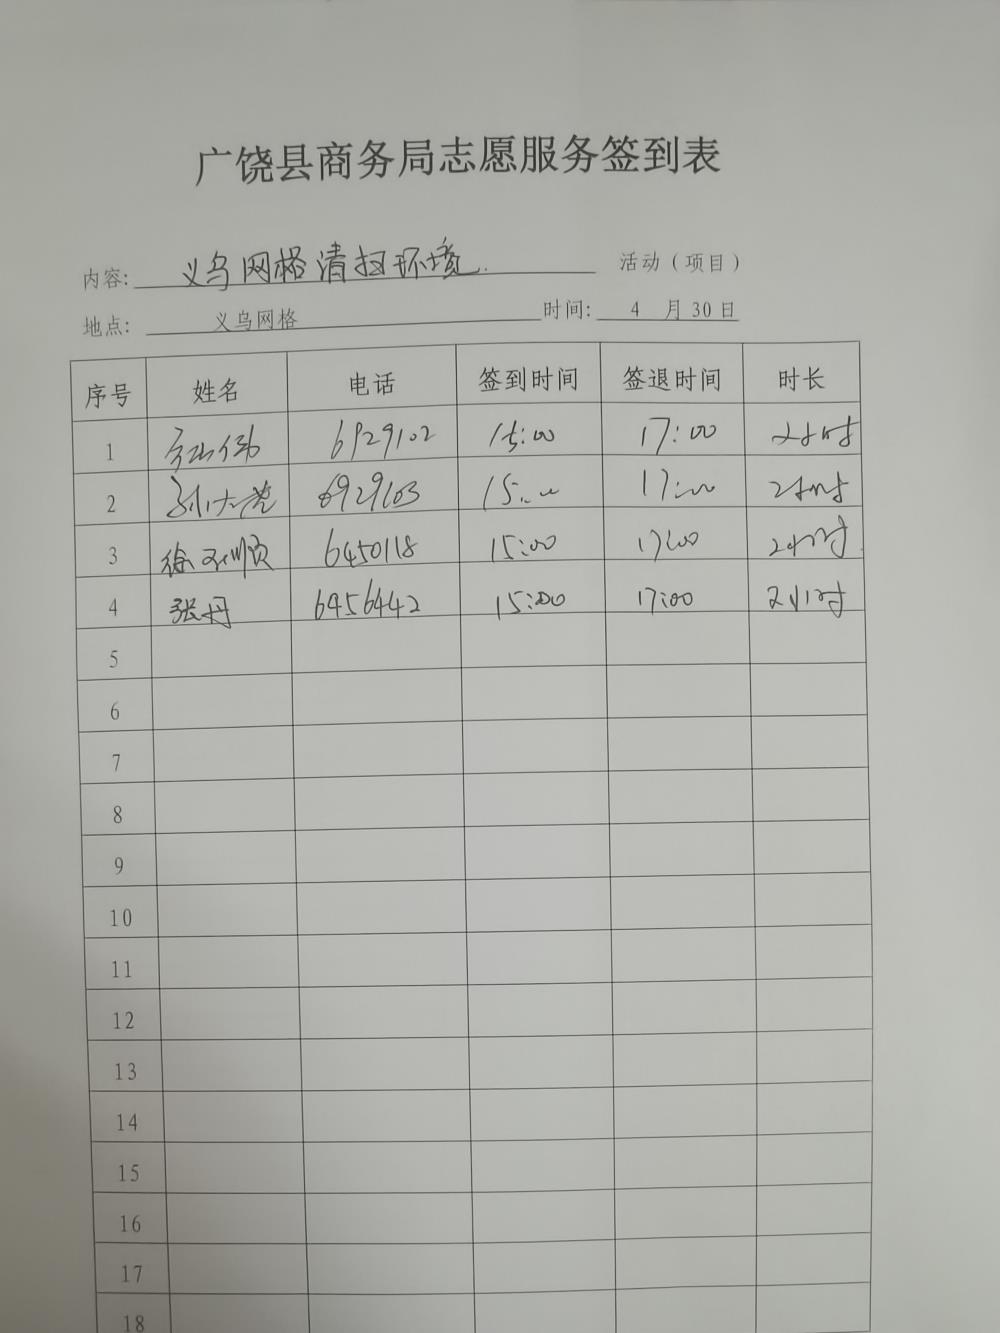 广饶县商务局志愿服务签到表
内容: 义乌网格清扫环境. 活动（项目）
地点: 义乌网格 时间: 4 月 30 日
序号 姓名 电话 签到时间 签退时间 时长
1 6929102 15:00 17:00 2小时
2 6929103 15:00 17:00 2小时
3 徐 顺 6450118 15:00 17:00 2小时
4 张丹 6456442 15:00 17:00 2小时
5
6
7
8
9
10
11
12
13
14
15
16
17
18